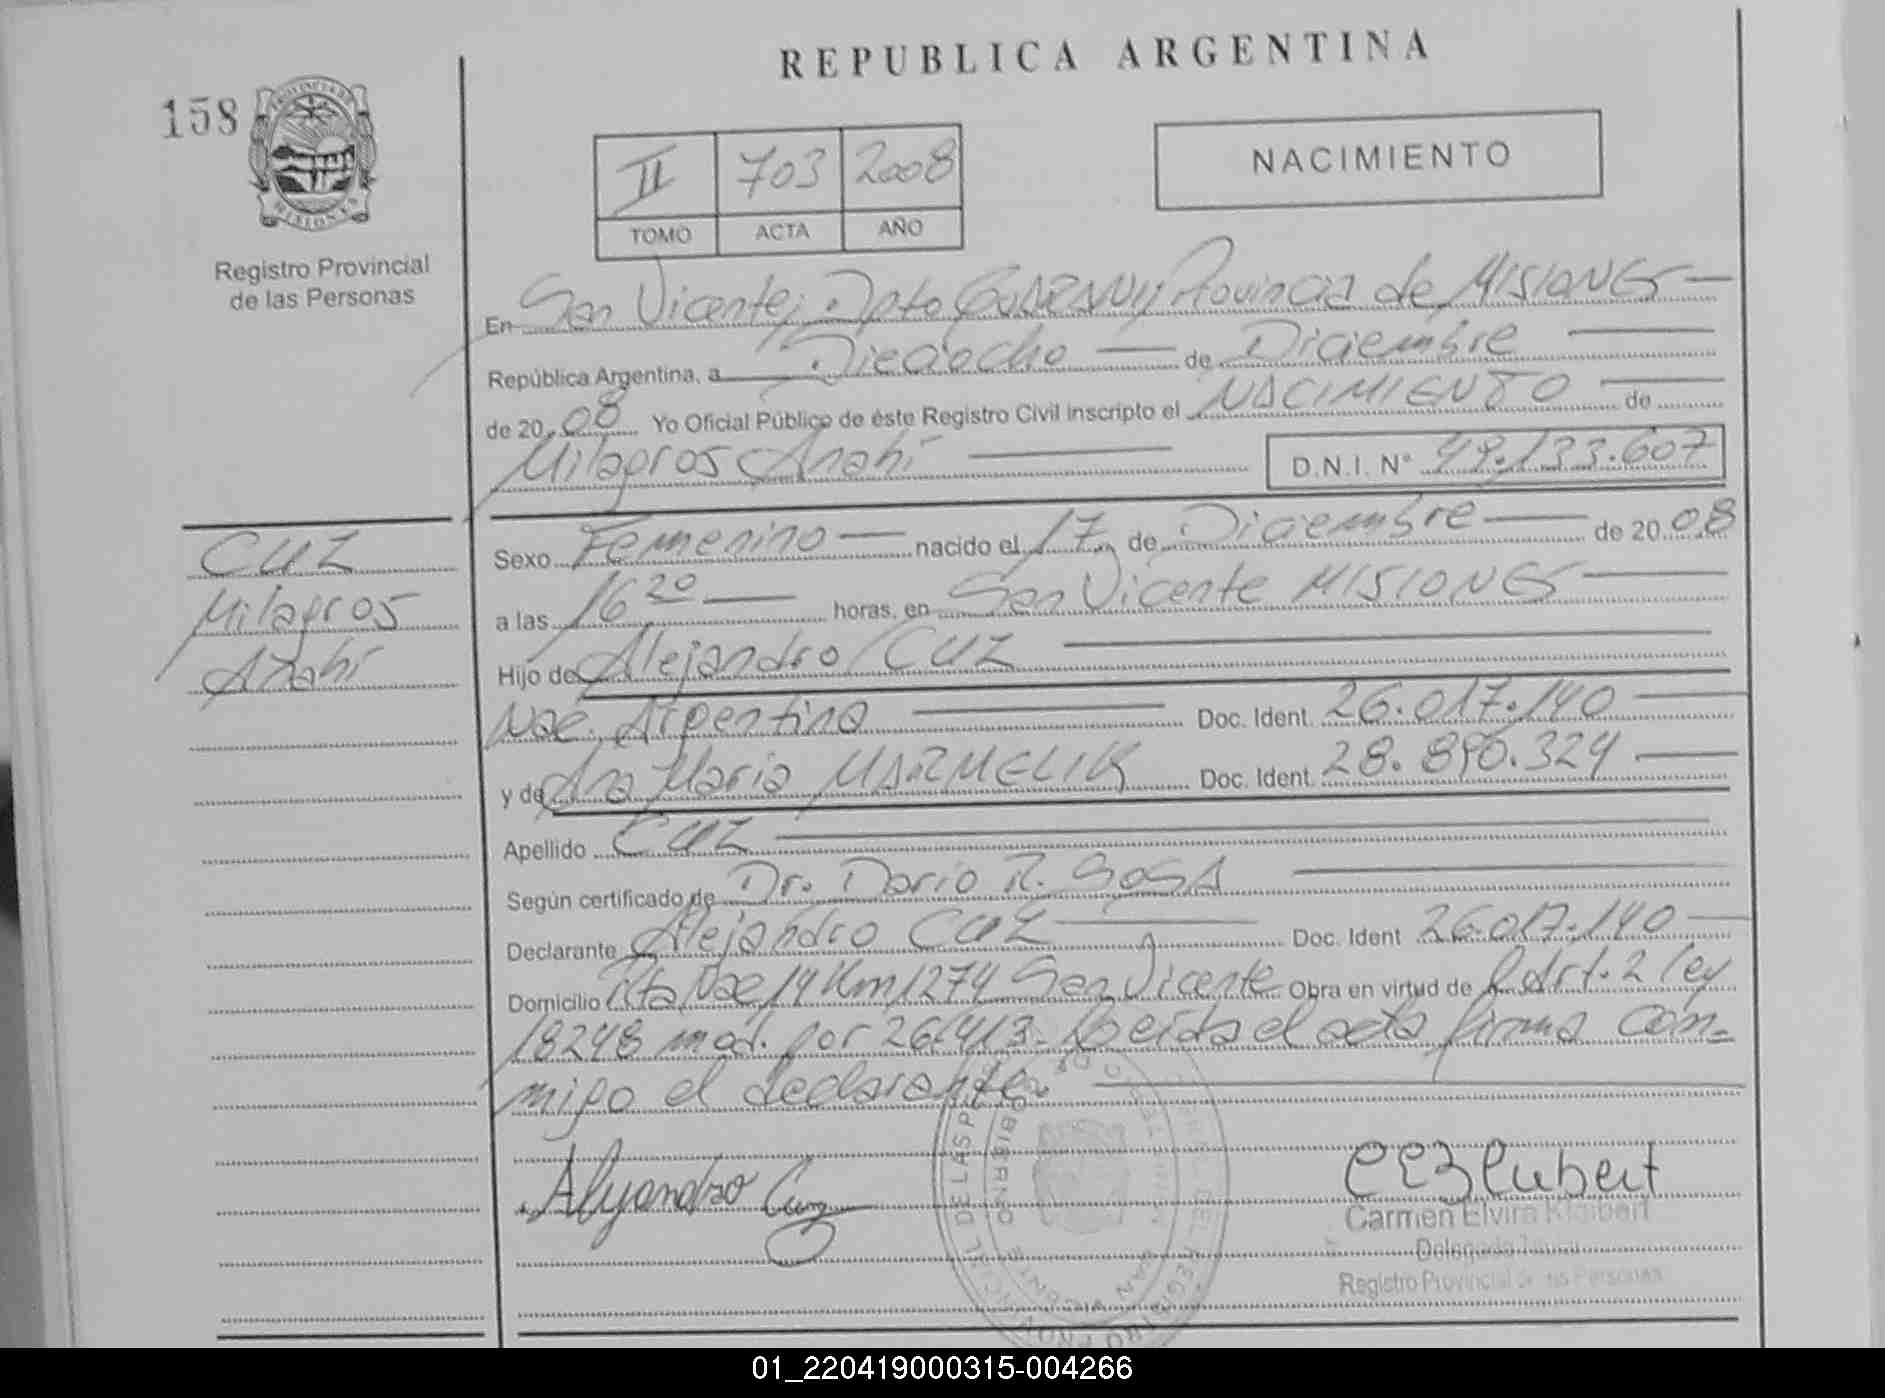 REPUBLICA ARGENTINA
158
II 703 2008
TOMO ACTA AÑO
NACIMIENTO
PROVINCIA DE
MISIONES
Registro Provincial
de las Personas
En San Vicente, Dpto GUARANI Provincia de MISIONES
República Argentina, a Dieciocho de Diciembre
de 2008 Yo Oficial Público de éste Registro Civil inscripto el NACIMIENTO de
Milagros Anahí D.N.I. Nº 49.133.607
Sexo Femenino nacido el 17 de Diciembre de 2008
a las 16 20 horas, en San Vicente MISIONES
Hijo de Alejandro CUZ
Nac. Argentina Doc. Ident. 26.017.140
y de Ana Maria MARMELIK Doc. Ident. 28.890.324
Apellido CUZ
Según certificado de Dr. Dario R. SOSA
Declarante Alejandro CUZ Doc. Ident 26.017.140
Domicilio Rta Nac 14 Km 1274 San Vicente Obra en virtud de Art. 2 ley
18248 mod. por 26.413. Leida el acta firma con-
migo el declarante.
CUZ
Milagros
Anahí
Alejandro Cuz
Carmen Elvira
Delegada
Registro Provincial de las Personas
01_220419000315-004266